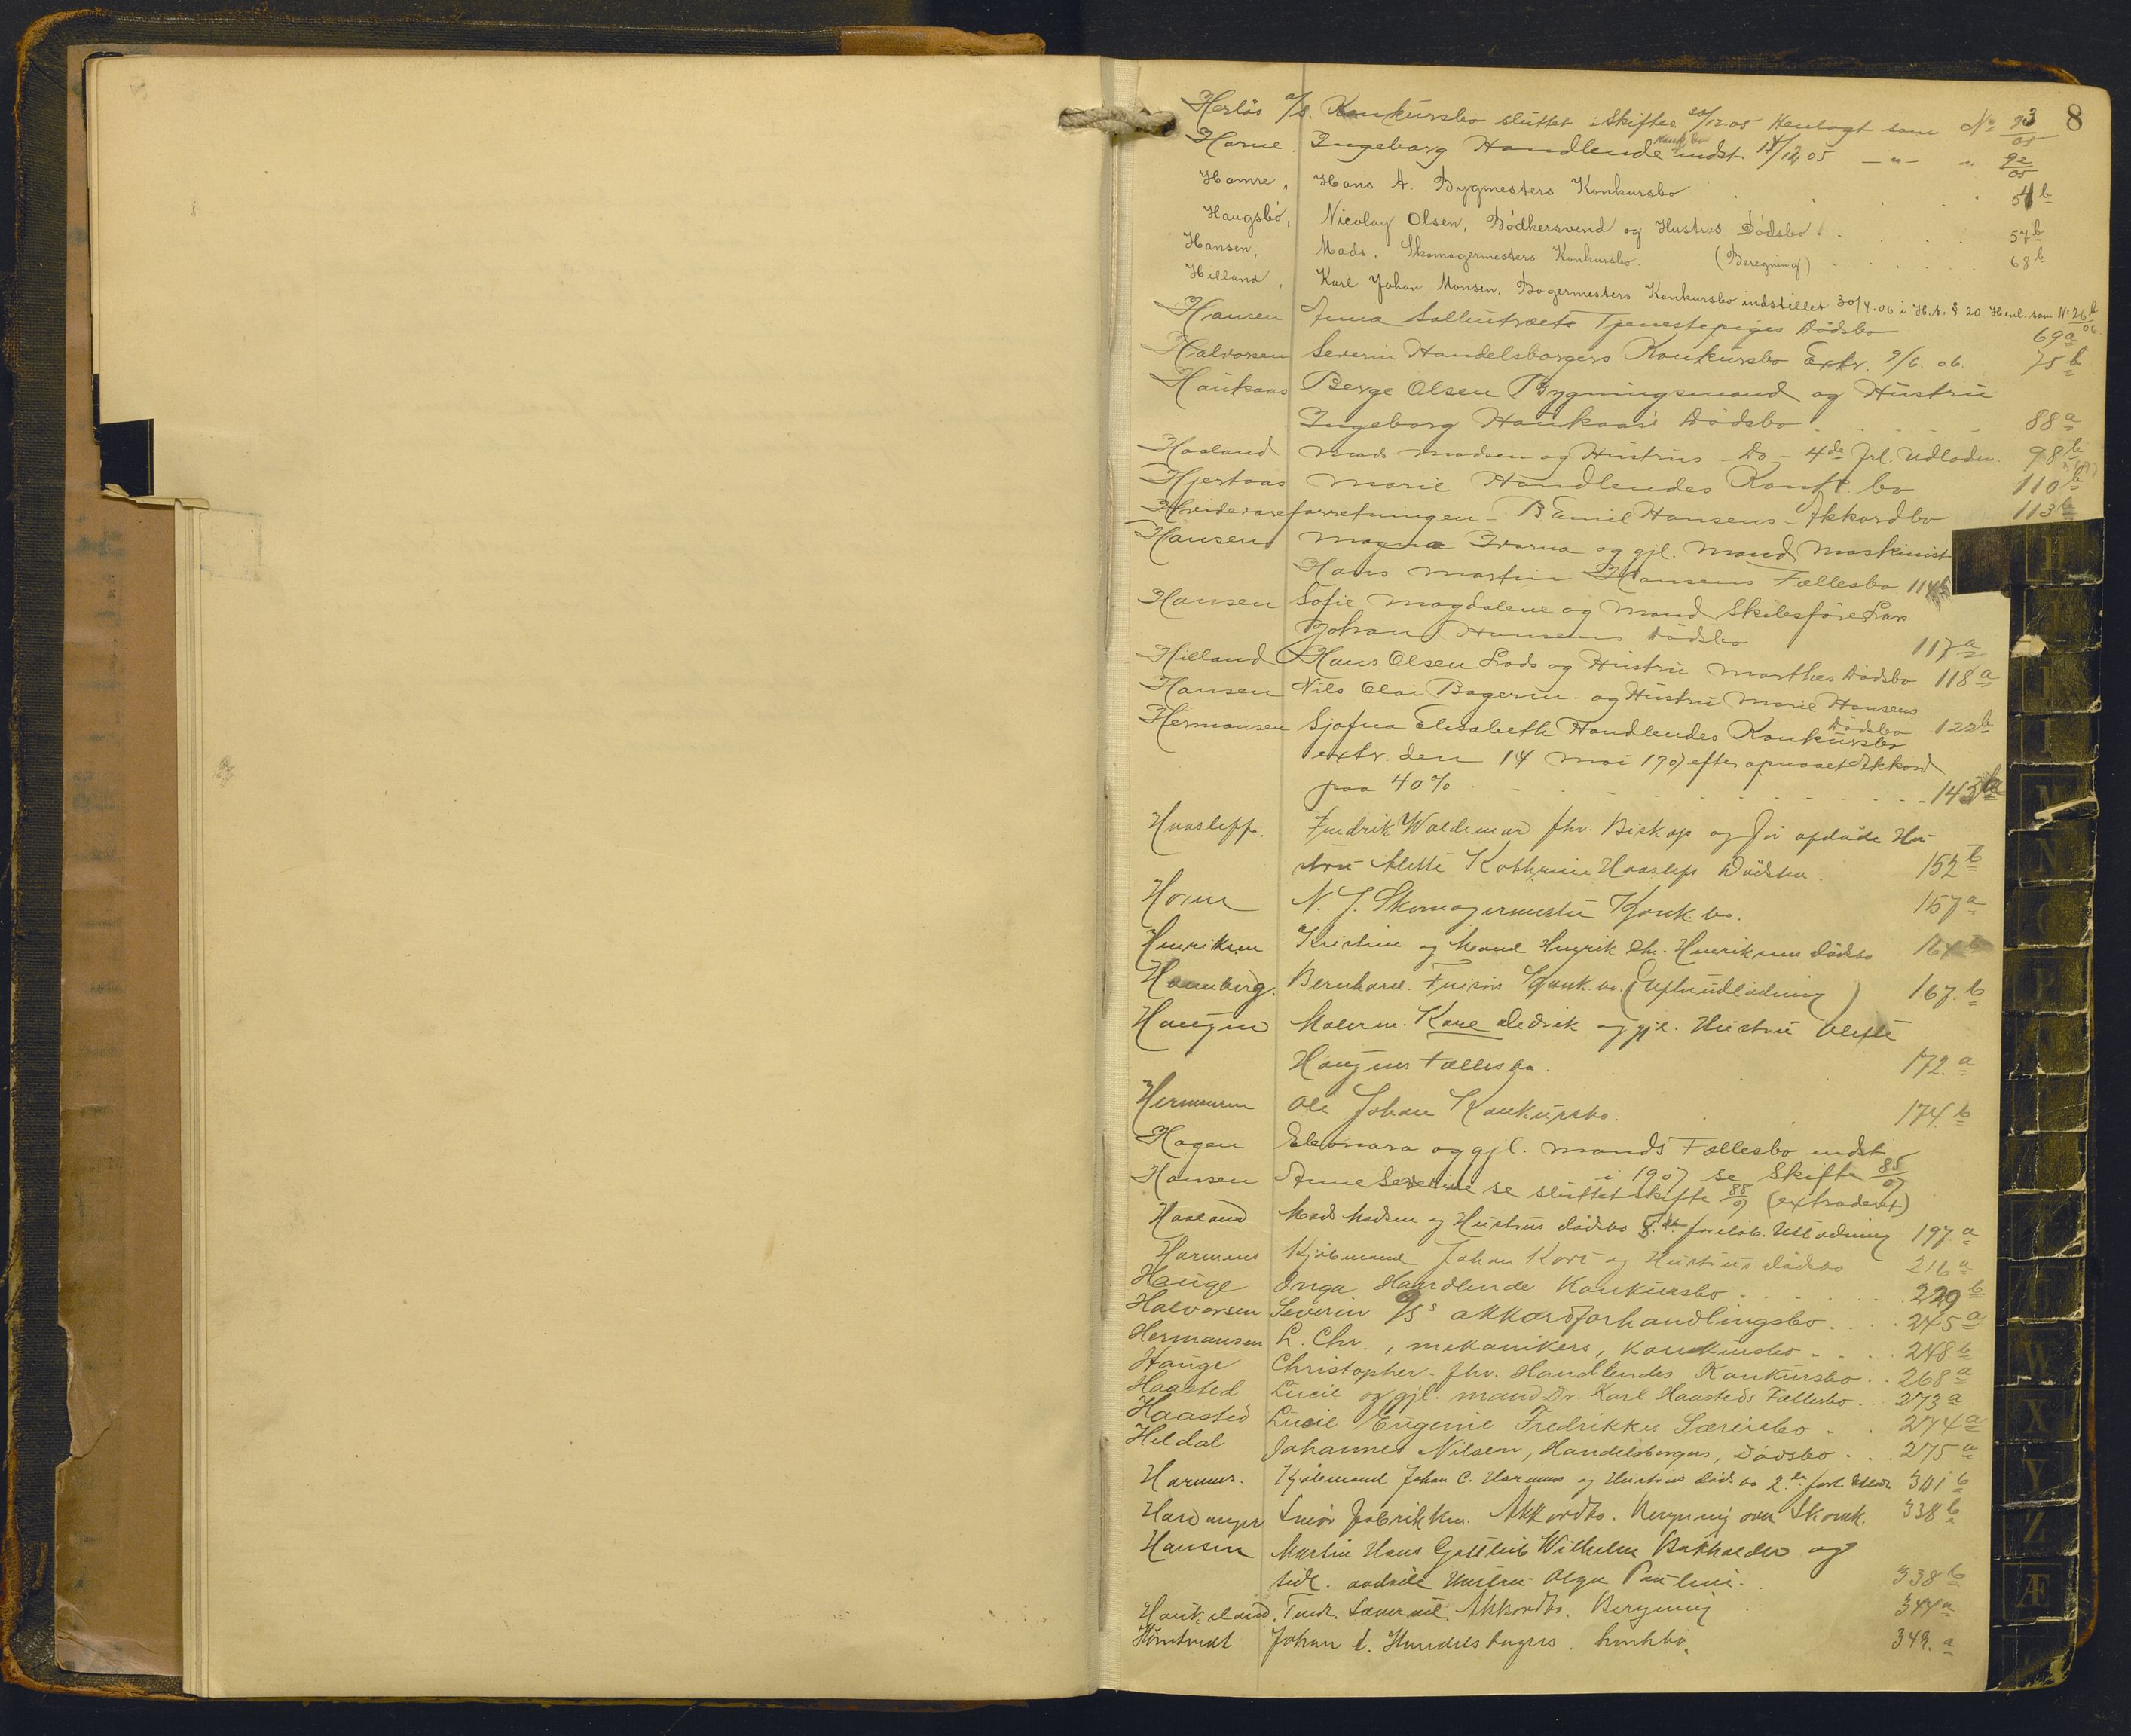 8
Herlös a/s. Konkursbo sluttet i Skifter 30/12 05 Henlagt som No 93/05
Horne. Ingeborg Handlende Konk.bo indst 14/12 05 — " — " 92/05
Hamre, Hans A. Bygmesters Konkursbo . . . . 51 b
Haugsbö, Nicolay Olsen, Bödkersvend og Hustrus Dödsbo . . . . 57 b
Hansen, Mads, Skomagermesters Konkursbo. (Beregning) . . . . 68 b
Hilland, Karl Johan Monsen, Bagermesters Konkursbo indstillet 30/4.06 i H. t. § 20. Henl. som No 26/06
Hansen Anna Tjenestepiges Dödsbo 69 a
Halvorsen Severin Handelsborgers Konkursbo Extr. 9/6. 06. 75 b
Haukaas Berge Olsen Bygningsmand og Hustru
Ingeborg Haukaas's Dödsbo . . . . 88 a
Haaland Mads Madsen og Hustrus - Do - 4de frl. Udlodn. 98 b
Hjertaas Marie Handlendes Konk. bo 110 b
Hvidevareforretningen - B. Emil Hansens - Akkordbo 113 b
Hansen Magna Ivarna og gjl. Mand Maskinist
Hans Martin Hansens Fællesbo. 114 b
Hansen Sofie Magdalene og Mand Skibsförer Lars
Johan Hansens Dödsbo 117 a
Hilland Hans Olsen Lods og Hustru Marthes Dödsbo 118 a
Hansen Nils Olai Bagerm. og Hustru Marie Hansens
Dödsbo 122 b
Hermansen Sjofna Elisabeth Handlendes Konkursbo
extr. den 14 Mai 1907 efter opnaaet Akkord
paa 40% . . . . 143
Hvasleff. Fredrik Waldemar fhv. Biskop og för afdöde Hu-
stru Alette Kathrine Hvasleffs Dödsbo. 152 b
Horne N. J. Skomagermester Konk. bo. 157 a
Henriksen Kristine og Mand Henrik Chr. Henriksens Dödsbo 164
Hannberg. Bernhard. Frisör Konk. bo. (Efterudlodning) 167. b
Haugen Malerm. Karl Didrik og gjl. Hustru Alette
Haugens Fællesbo. 172. a
Hermansen Ole Johan Konkursbo. 174. b
Hagen Eleonora og gjl. Mands Fællesbo indst
i 1907 se Skifte 85/07
Hansen Anne Severine se sluttet Skifte 88/07 (extraderet)
Haaland Mads Madsen og Hustrus Dödsbo 5. te foreløb. Utlodning 197. a
Harmens Kjöbmand Johan Kort og Hustrus Dödsbo 216 a
Hauge Inga Handlende Konkursbo . . . . 229 b
Halvorsen Severin A/S s akkordforhandlingsbo . . . . 245 a
Hermansen L. Chr., mekanikers, Konkursbo . . . . 248 b
Hauge Christopher. fhv. Handlendes Konkursbo . . 268 a
Haasted Lucie og gjl. mand Dr. Karl Haasteds Fællesbo . . 273 a
Haasted Lucie Eugenie Fredrikkes Særeiebo . . 274 a
Hildal Johannes Nilsen, Handelsborgers, Dödsbo . . . 275 a
Harmens. Kjöbmand Johan C. Harmens og Hustrus Dödsbo 2. den forl. Utlodn 301 b
Hardanger Smör Fabrikken. Akkordbo. Beregning over Skomk. 338 b
Hansen Martin Hans Gottlieb Wilhelm Bokholder og
tidl. avdöde Hustru Olga Pauline. 338 b
Haukeland. Akkordbo. Beregning . 344 a
Johan E. Handelsborgers. konkbo. 349. a
H
M
N
O
P
W
X
Y
Z
Æ